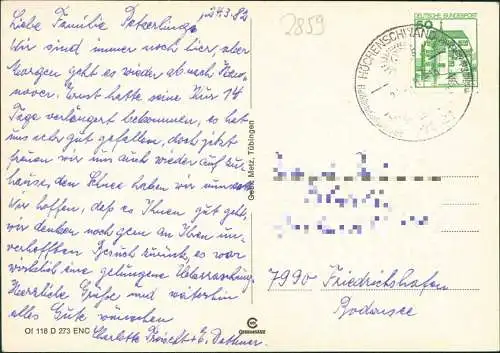 24.3.82
Liebe Familie
Wir sind immer noch hier, aber
Morgen geht es wieder ab nach Han-
nover. Ernst hatte seine Kur 14
Tage verlängert bekommen, es hat
uns sehr gut gefallen, doch jetzt
freuen wir uns auch wieder auf zu-
hause, den Schnee haben wir
Wir hoffen, daß es Ihnen gut geht,
wir denken noch gern an Ihren un-
verhofften Besuch zurück, es war
wirklich eine gelungene Überraschung.
Herzliche Grüße und weiterhin
alles Gute wünschen
Charlotte
2859
DEUTSCHE BUNDESPOST
50
HÖCHENSCHWAND
7990 Friedrichshafen
Bodensee
Gebr. Metz, Tübingen
Of 118 D 273 ENC